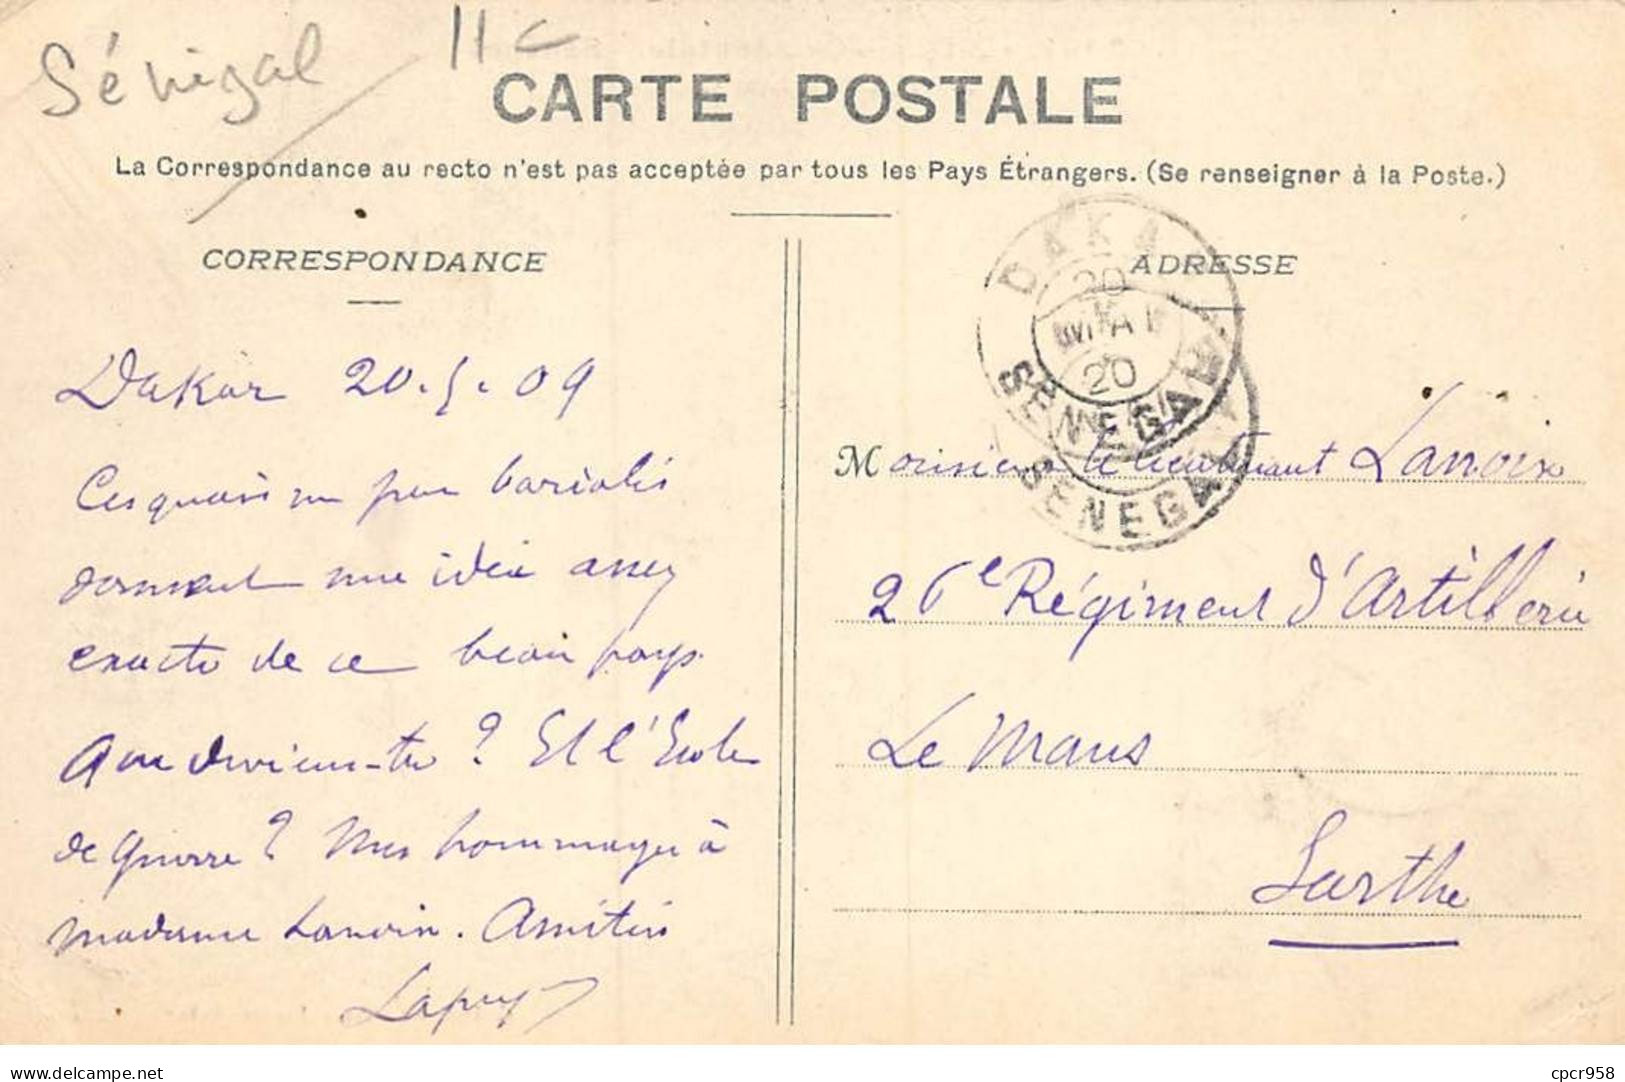 Sénégal
11 c
CARTE POSTALE
La Correspondance au recto n'est pas acceptée par tous les Pays Étrangers. (Se renseigner à la Poste.)
CORRESPONDANCE
Dakar 20.5.09
un peu
donnent une idée assez
exacte de ce beau pays.
Que deviens-tu ? Et l'Ecole
de Guerre ? Mes hommages à
madame Lanoix. Amitiés
ADRESSE
DAKAR
20
MAI
SENEGAL
20
SENEGAL
Monsieur le lieutenant Lanoix
26e Régiment d'Artillerie
Le Mans
Sarthe
delcampe.net
cpcr958